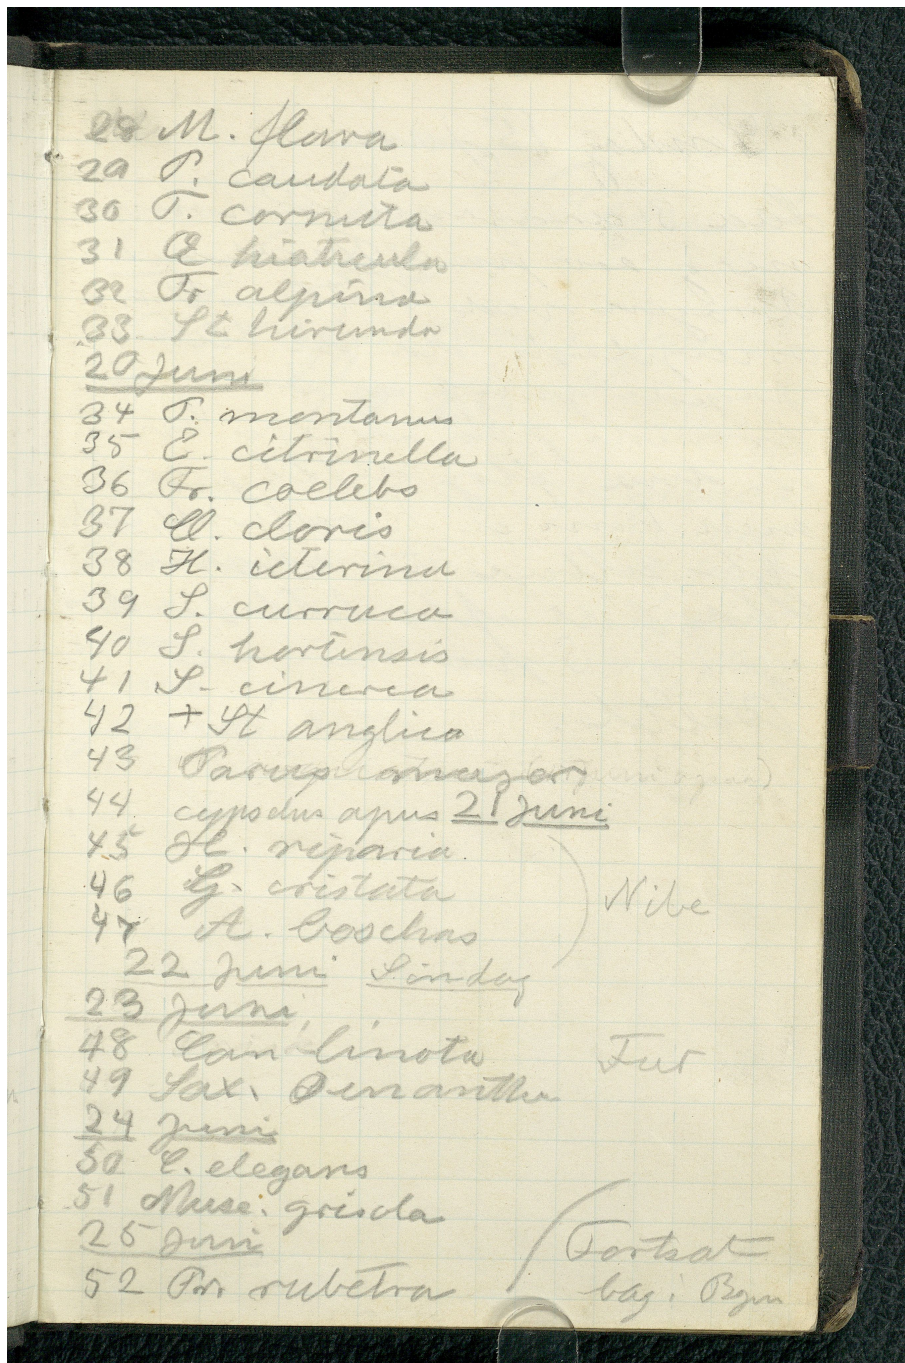 28 M. flava
29 P. caudata
30 T. cornuta
31 Æ hiaticula
32 Tr alpina
33 St hirundo
20 Juni
34 P. montanus
35 E. citrinella
36 Fr. coelebs
37 Cl. cloris
38 H. icterina
39 S. curruca
40 S. hortensis
41 S. cinerea
42 + St anglica
43 Parus major
44 cypselus apus 21 Juni
45 H. riparia
46 G. cristata
Nibe
47 A. boschas
22 Juni Søndag
23 Juni
48 Can linota Fur
49 Sax. Oenanthe
24 Juni
50 C. elegans
51 Musc. grisola
25 Juni
Fortsat
52 Pr rubetra
bag i Bgen